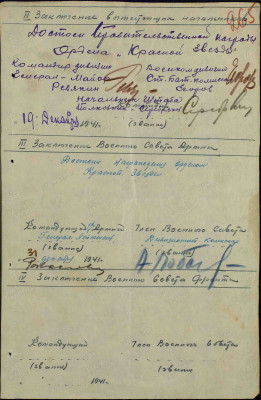 II Заключение вышестоящих начальников
Достоин Правительственной награды
Ордена „Красной Звезды"
Командир дивизии
Генерал-Майор
Ревякин
Военкомдивизии
Ст. Бат. комиссар
Егоров
Начальник Штаба
Полковник
19 Декабря 1941г.
(звание)
III Заключение Военного Совета Армии
Достоин награждения орденом
Красной Звезды
Командующий Армией
Член Военного Совета
(звание)
Дивизионный комиссар
(звание)
31
1941г.
IV Заключение Военного Совета Фронта
Командующий
Член Военного Совета
(звание)
(звание)
1941г.